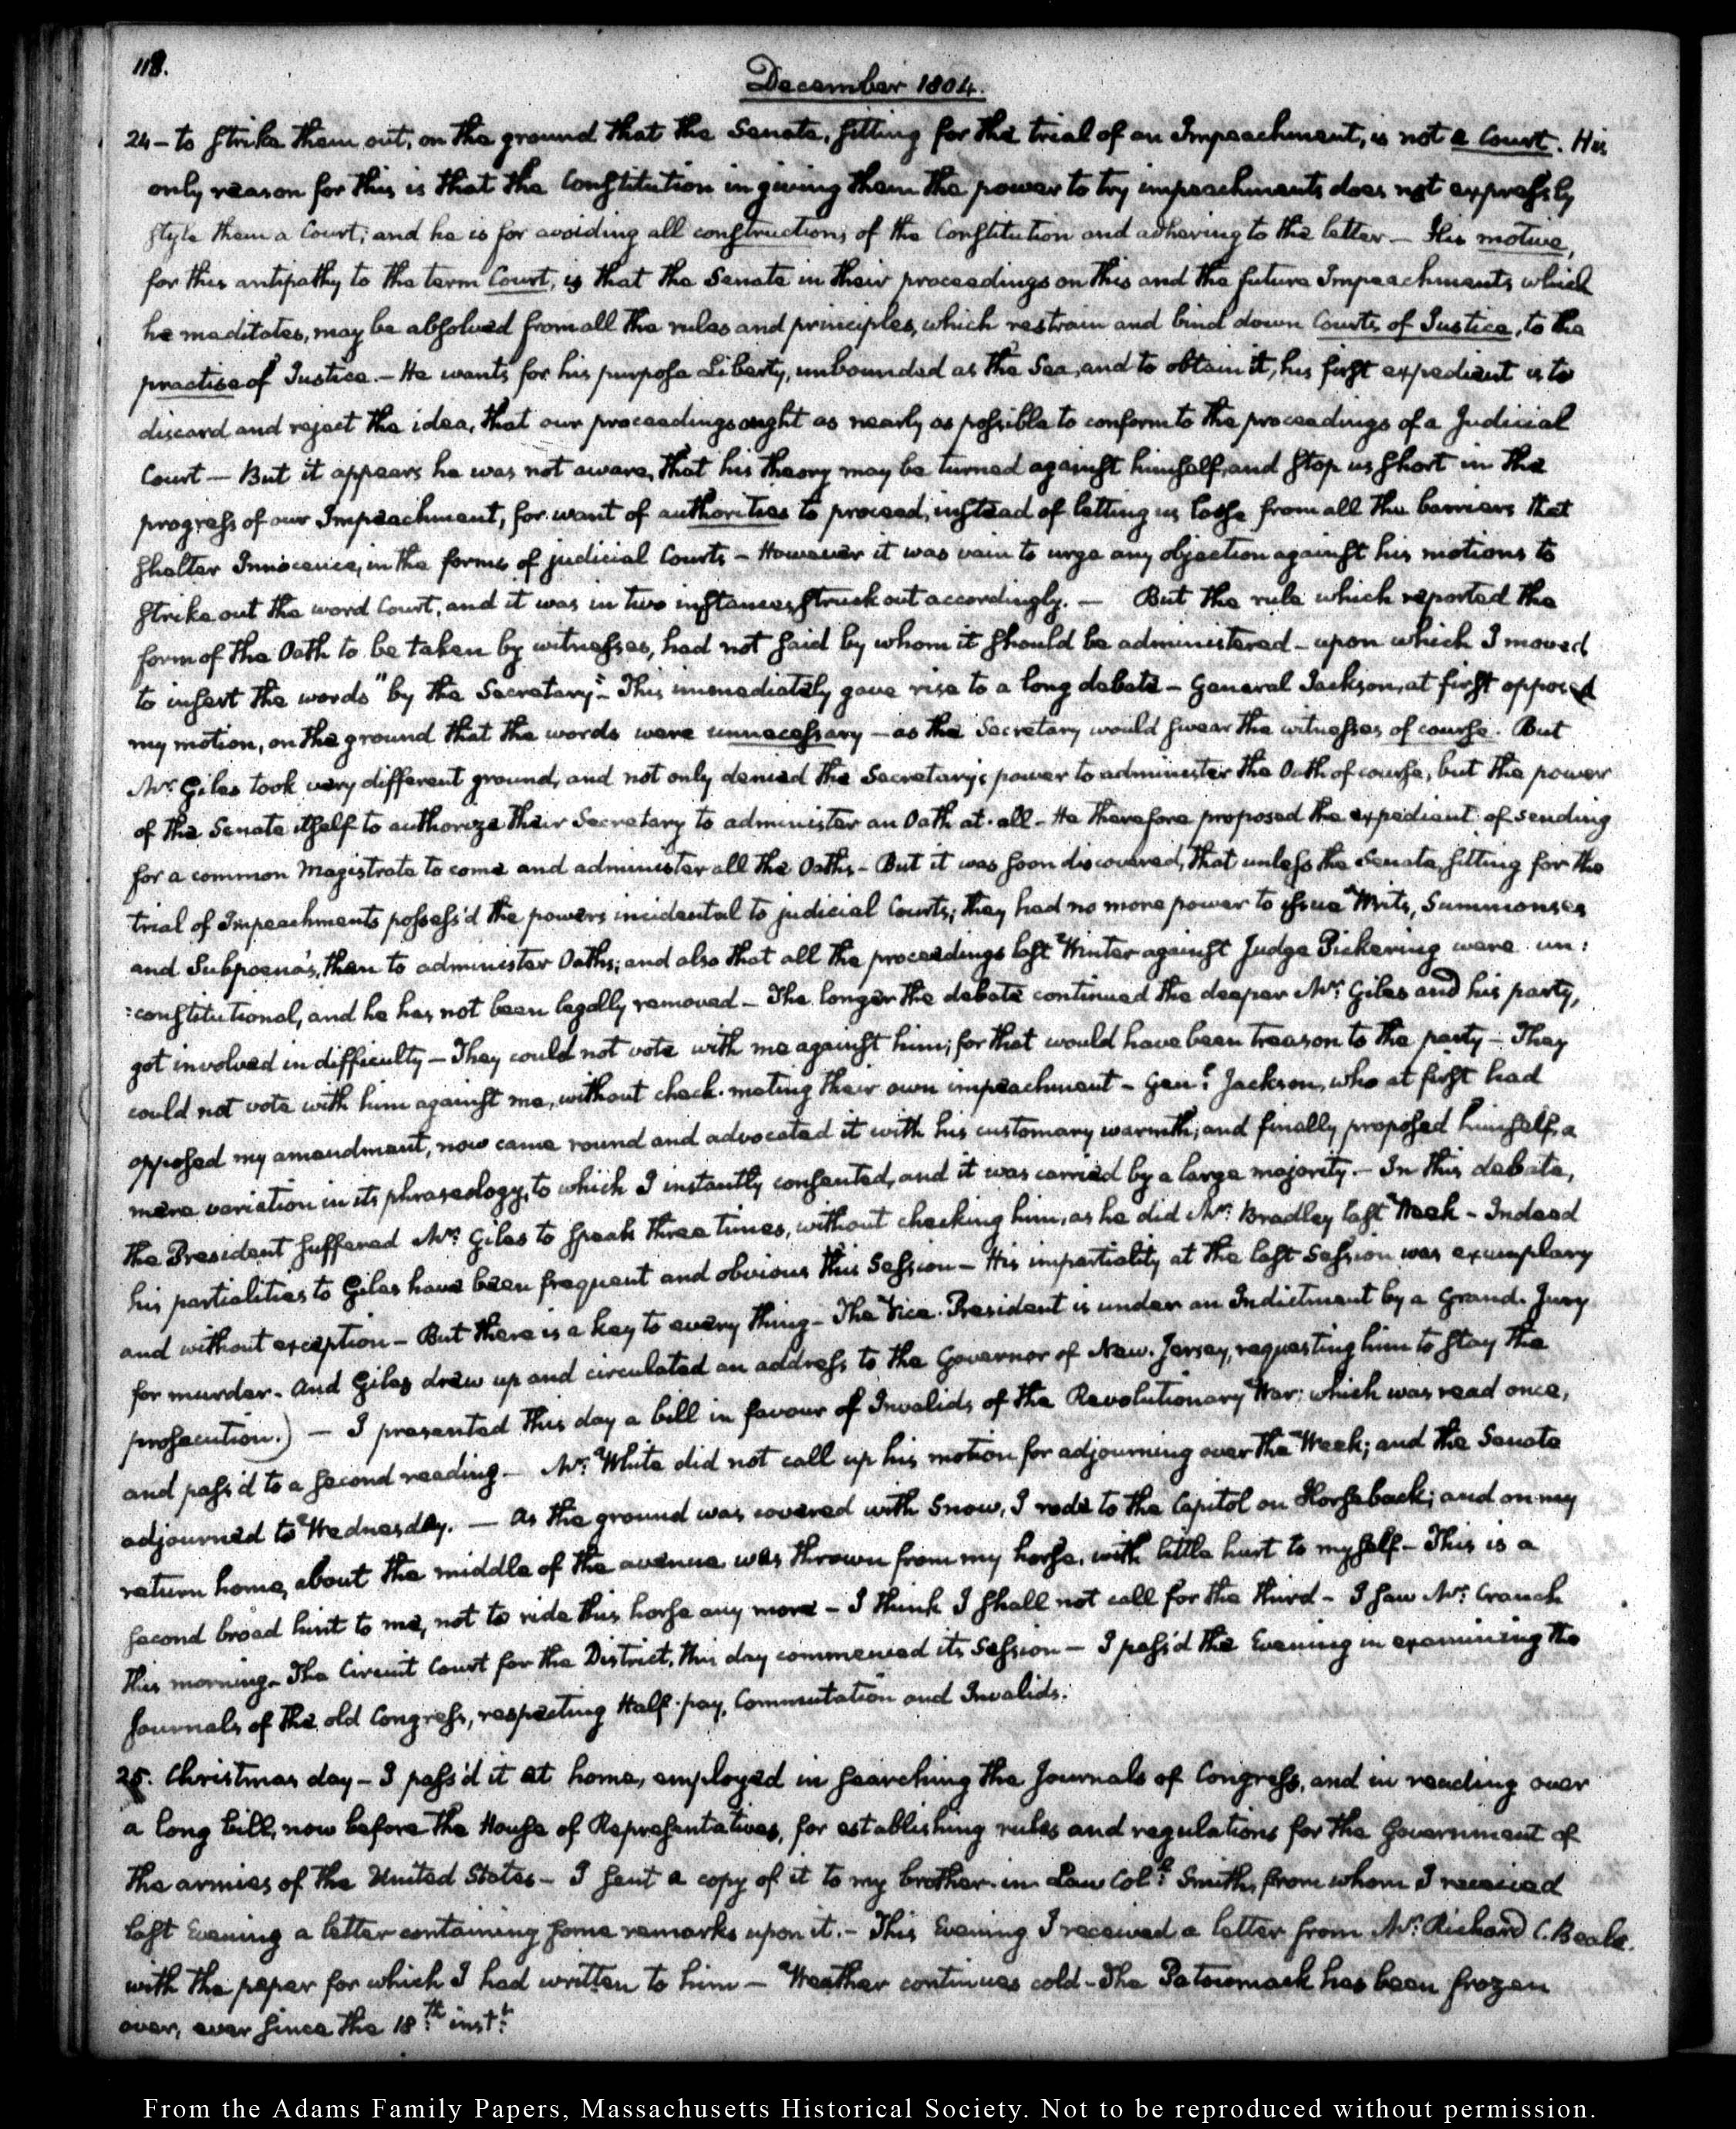 118.
December 1804.
24 - to strike them out, on the ground that the Senate, sitting for the trial of an Impeachment, is not a Court. His
only reason for this is that the Constitution in giving them the power to try impeachments does not expressly
style them a Court; and he is for avoiding all constructions of the Constitution and adhering to the letter — His motive,
for this antipathy to the term Court, is that the Senate in their proceedings on this and the future Impeachments which
he meditates, may be absolved from all the rules and principles, which restrain and bind down Courts of Justice, to the
practise of Justice. — He wants for his purpose Liberty, unbounded as the Sea, and to obtain it, his first expedient is to
discard and reject the idea, that our proceedings ought as nearly as possible to conform to the proceedings of a Judicial
Court — But it appears he was not aware, that his theory may be turned against himself, and stop us short in the
progress of our Impeachment, for want of authorities to proceed, instead of letting us loose from all the barriers that
shelter Innocence, in the forms of judicial Courts — However it was vain to urge any objection against his motions to
strike out the word Court, and it was in two instances struck out accordingly. — But the rule which reported the
form of the Oath to be taken by witnesses, had not said by whom it should be administered — upon which I moved
to insert the words "by the Secretary" — This immediately gave rise to a long debate — General Jackson, at first opposed
my motion, on the ground that the words were unnecessary — as the Secretary would swear the witnesses of course. But
Mr: Giles took very different ground, and not only denied the Secretary's power to administer the Oath of course, but the power
of the Senate itself to authorize their Secretary to administer an Oath at all — He therefore proposed the expedient of sending
for a common Magistrate to come and administer all the Oaths — But it was soon discovered, that unless the Senate, sitting for the
trial of Impeachments possess'd the powers incidental to judicial Courts; they had no more power to issue Writs, Summonses
and Subpoena's, than to administer Oaths; and also that all the proceedings last Winter against Judge Pickering were un:
:constitutional, and he has not been legally removed — The longer the debate continued the deeper Mr: Giles and his party,
got involved in difficulty — They could not vote with me against him; for that would have been treason to the party — They
could not vote with him against me, without check-mating their own impeachment — Genl: Jackson, who at first had
opposed my amendment, now came round and advocated it with his customary warmth; and finally proposed himself, a
mere variation in its phraseology, to which I instantly consented, and it was carried by a large majority. — In this debate,
the President suffered Mr: Giles to speak three times, without checking him, as he did Mr: Bradley last Week — Indeed
his partialities to Giles have been frequent and obvious this Session — His impartiality at the last Session was exemplary
and without exception — But there is a key to every thing — The Vice-President is under an Indictment by a Grand-Jury
for murder. And Giles drew up and circulated an address to the Governor of New-Jersey, requesting him to stay the
prosecution.) — I presented this day a bill in favour of Invalids of the Revolutionary War: which was read once,
and pass'd to a second reading — Mr: White did not call up his motion for adjourning over the Week; and the Senate
adjourned to Wednesday. — As the ground was covered with Snow, I rode to the Capitol on Horseback; and on my
return home, about the middle of the avenue was thrown from my horse, with little hurt to myself — This is a
second broad hint to me, not to ride this horse any more — I think I shall not call for the third — I saw Mr: Cranch
this morning. The Circuit Court for the District, this day commenced its Session — I pass'd the Evening in examining the
Journals of the old Congress, respecting Half-pay, Commutation and Invalids.
25. Christmas day — I pass'd it at home, employed in searching the Journals of Congress, and in reading over
a long bill, now before the House of Representatives, for establishing rules and regulations for the government of
the armies of the United States — I sent a copy of it to my brother-in-Law Coll: Smith, from whom I received
last Evening a letter containing some remarks upon it. — This Evening I received a letter from Mr: Richard C. Beale.
with the paper for which I had written to him — Weather continues cold — The Patowmack has been frozen
over, ever since the 18th: instt:
From the Adams Family Papers, Massachusetts Historical Society. Not to be reproduced without permission.